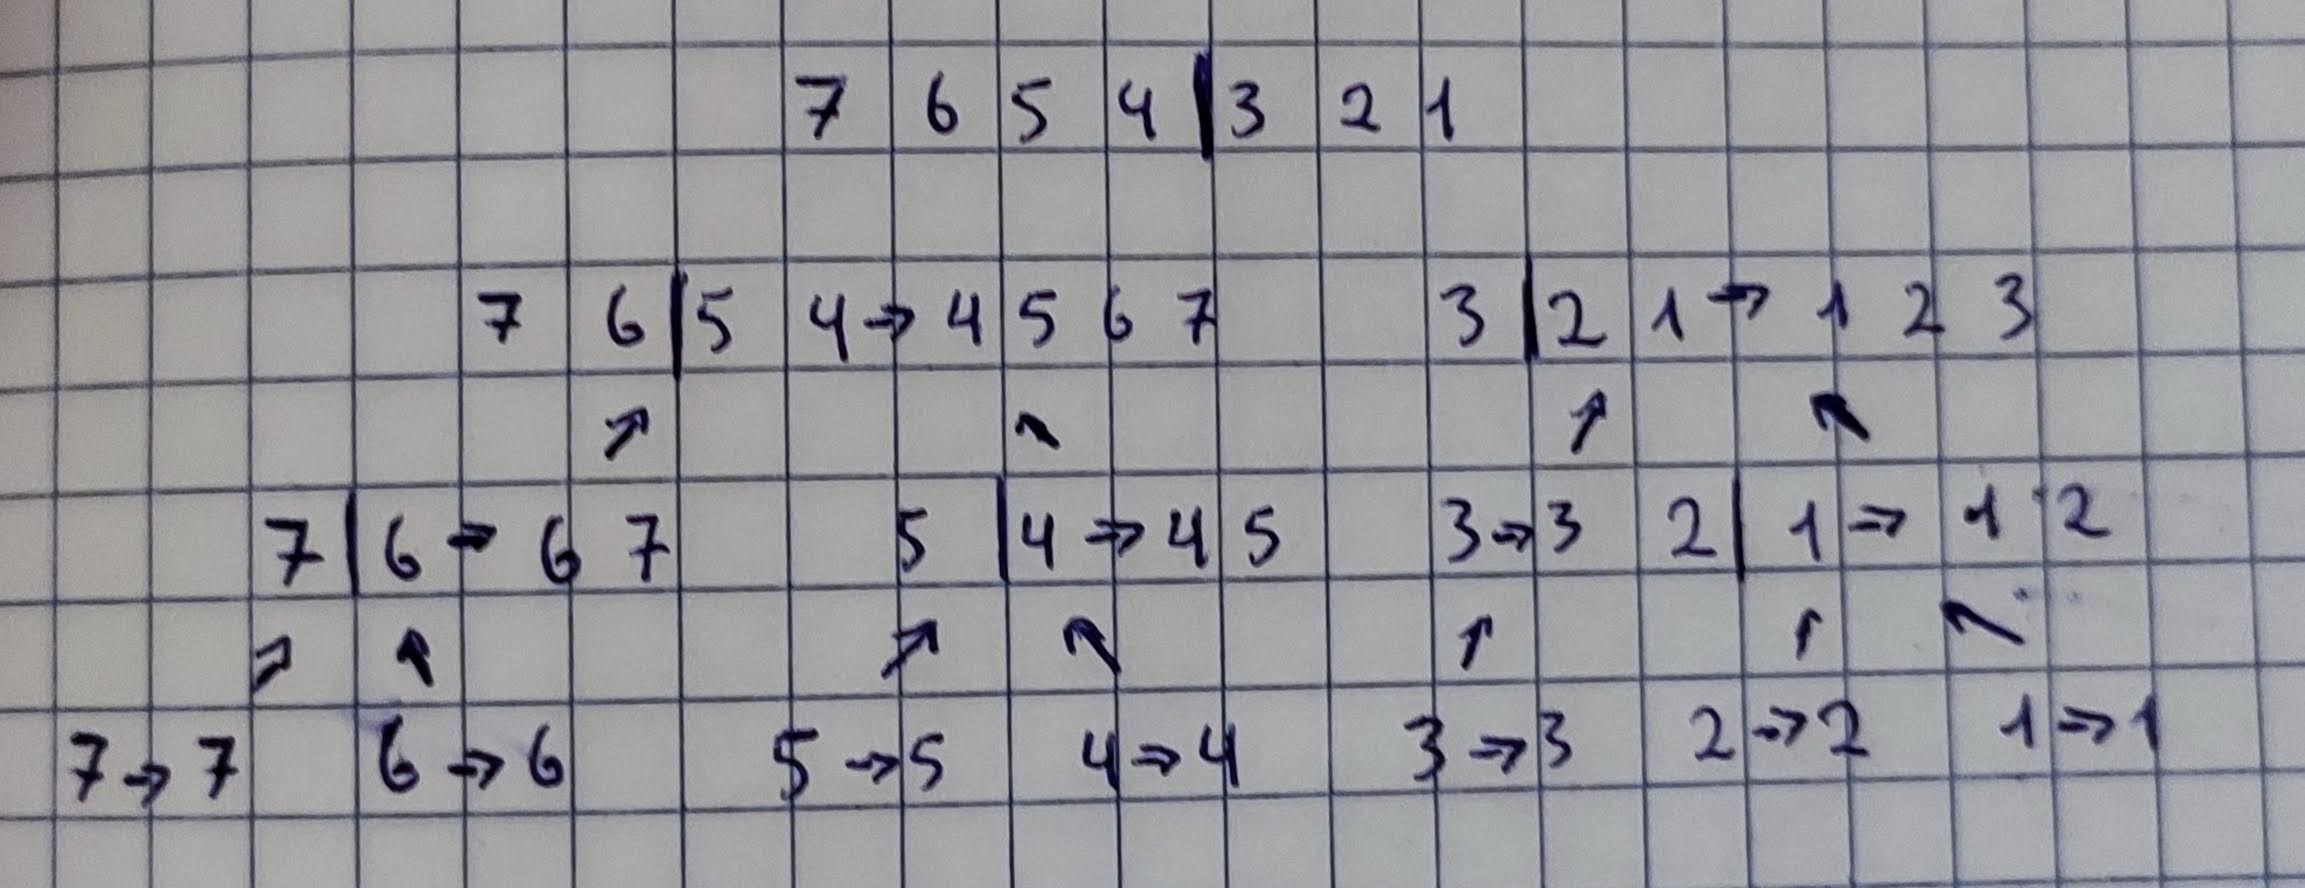 7 6 5 4 | 3 2 1
7 6 | 5 4 → 4 5 6 7 3 | 2 1 → 1 2 3
↗ ↖ ↗ ↖
7 | 6 → 6 7 5 | 4 → 4 5 3 → 3 2 | 1 → 1 2
↗ ↑ ↗ ↖ ↑ ↑ ↖
7 → 7 6 → 6 5 → 5 4 → 4 3 → 3 2 → 2 1 → 1